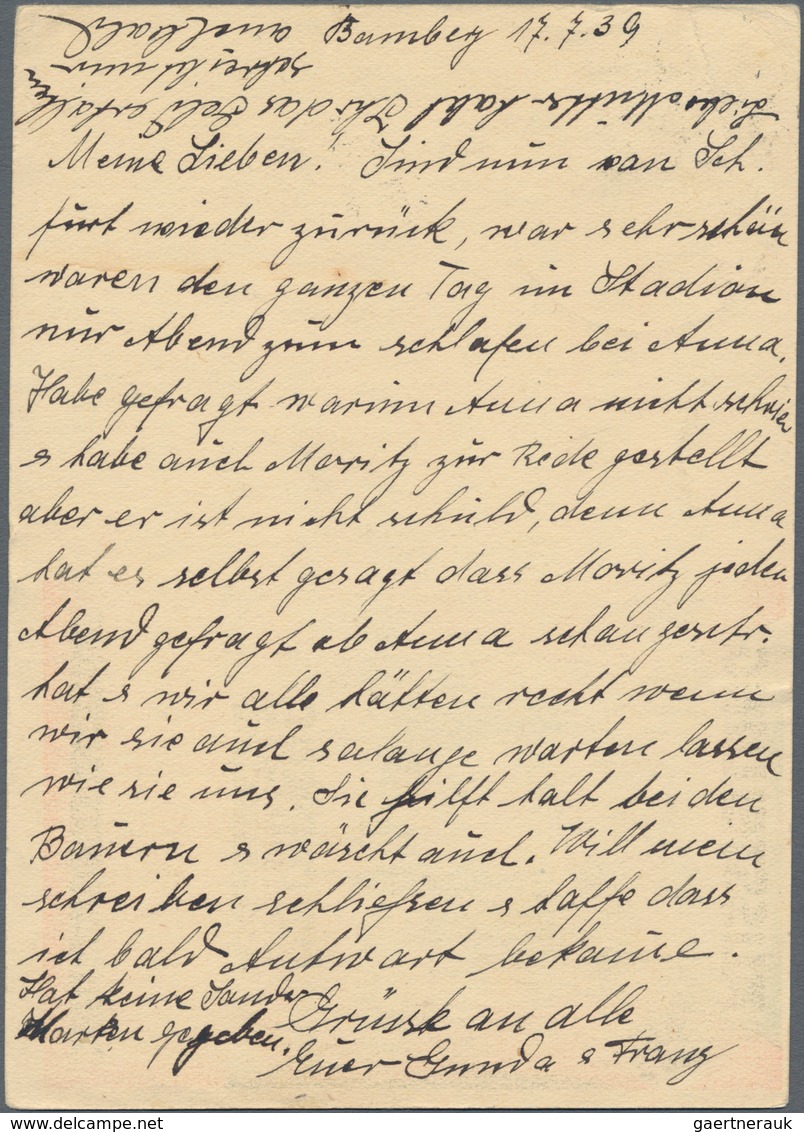 Bamberg 17.7.39
Liebe Mutter habt Ihr das Geld erhalten
schreibt mir
auch bald
Meine Lieben! Sind nun von Sch.
furt wieder zurück, war sehr schön
waren den ganzen Tag im Stadion
nur Abend zum schlafen bei Anna.
Habe gefragt warum Anna nicht schrieb
s habe auch Moritz zur Rede gestellt
aber er ist nicht schuld, denn Anna
hat es selbst gesagt dass Moritz jeden
Abend gefragt ob Anna schon geschr.
hat s wir alle hätten recht wenn
wir sie auch solange warten lassen
wie sie uns. Sie hilft halt bei den
Bauern s wäscht auch. Will mein
schreiben schließen s hoffe dass
ich bald Antwort bekome.
Hat keine Sonder
Marken gegeben.
Grüsse an alle
Euer Gunda s Franz
gaertnerauk